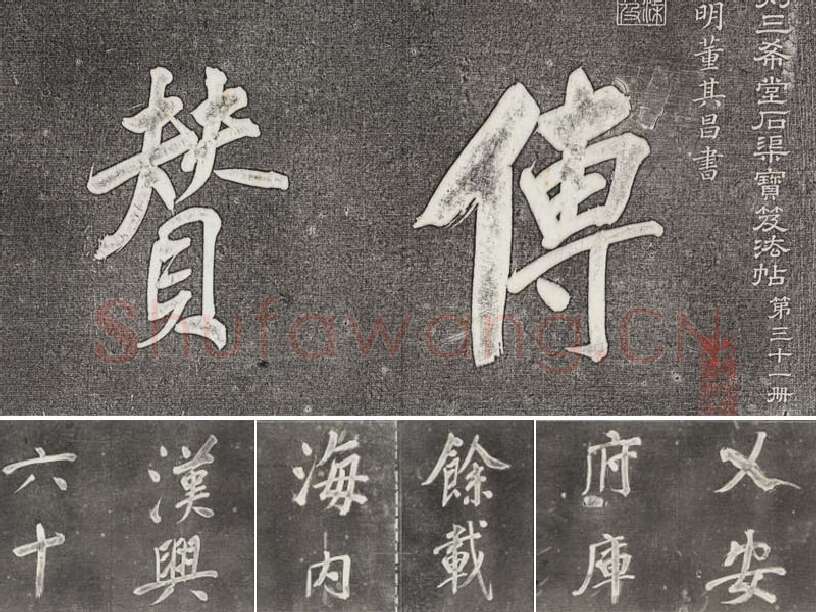 三希堂石渠寶笈法帖 第三十一册
明董其昌書
傳
賛
漢興
六十
餘載
海内
乂安
府庫
Shufawang.CN